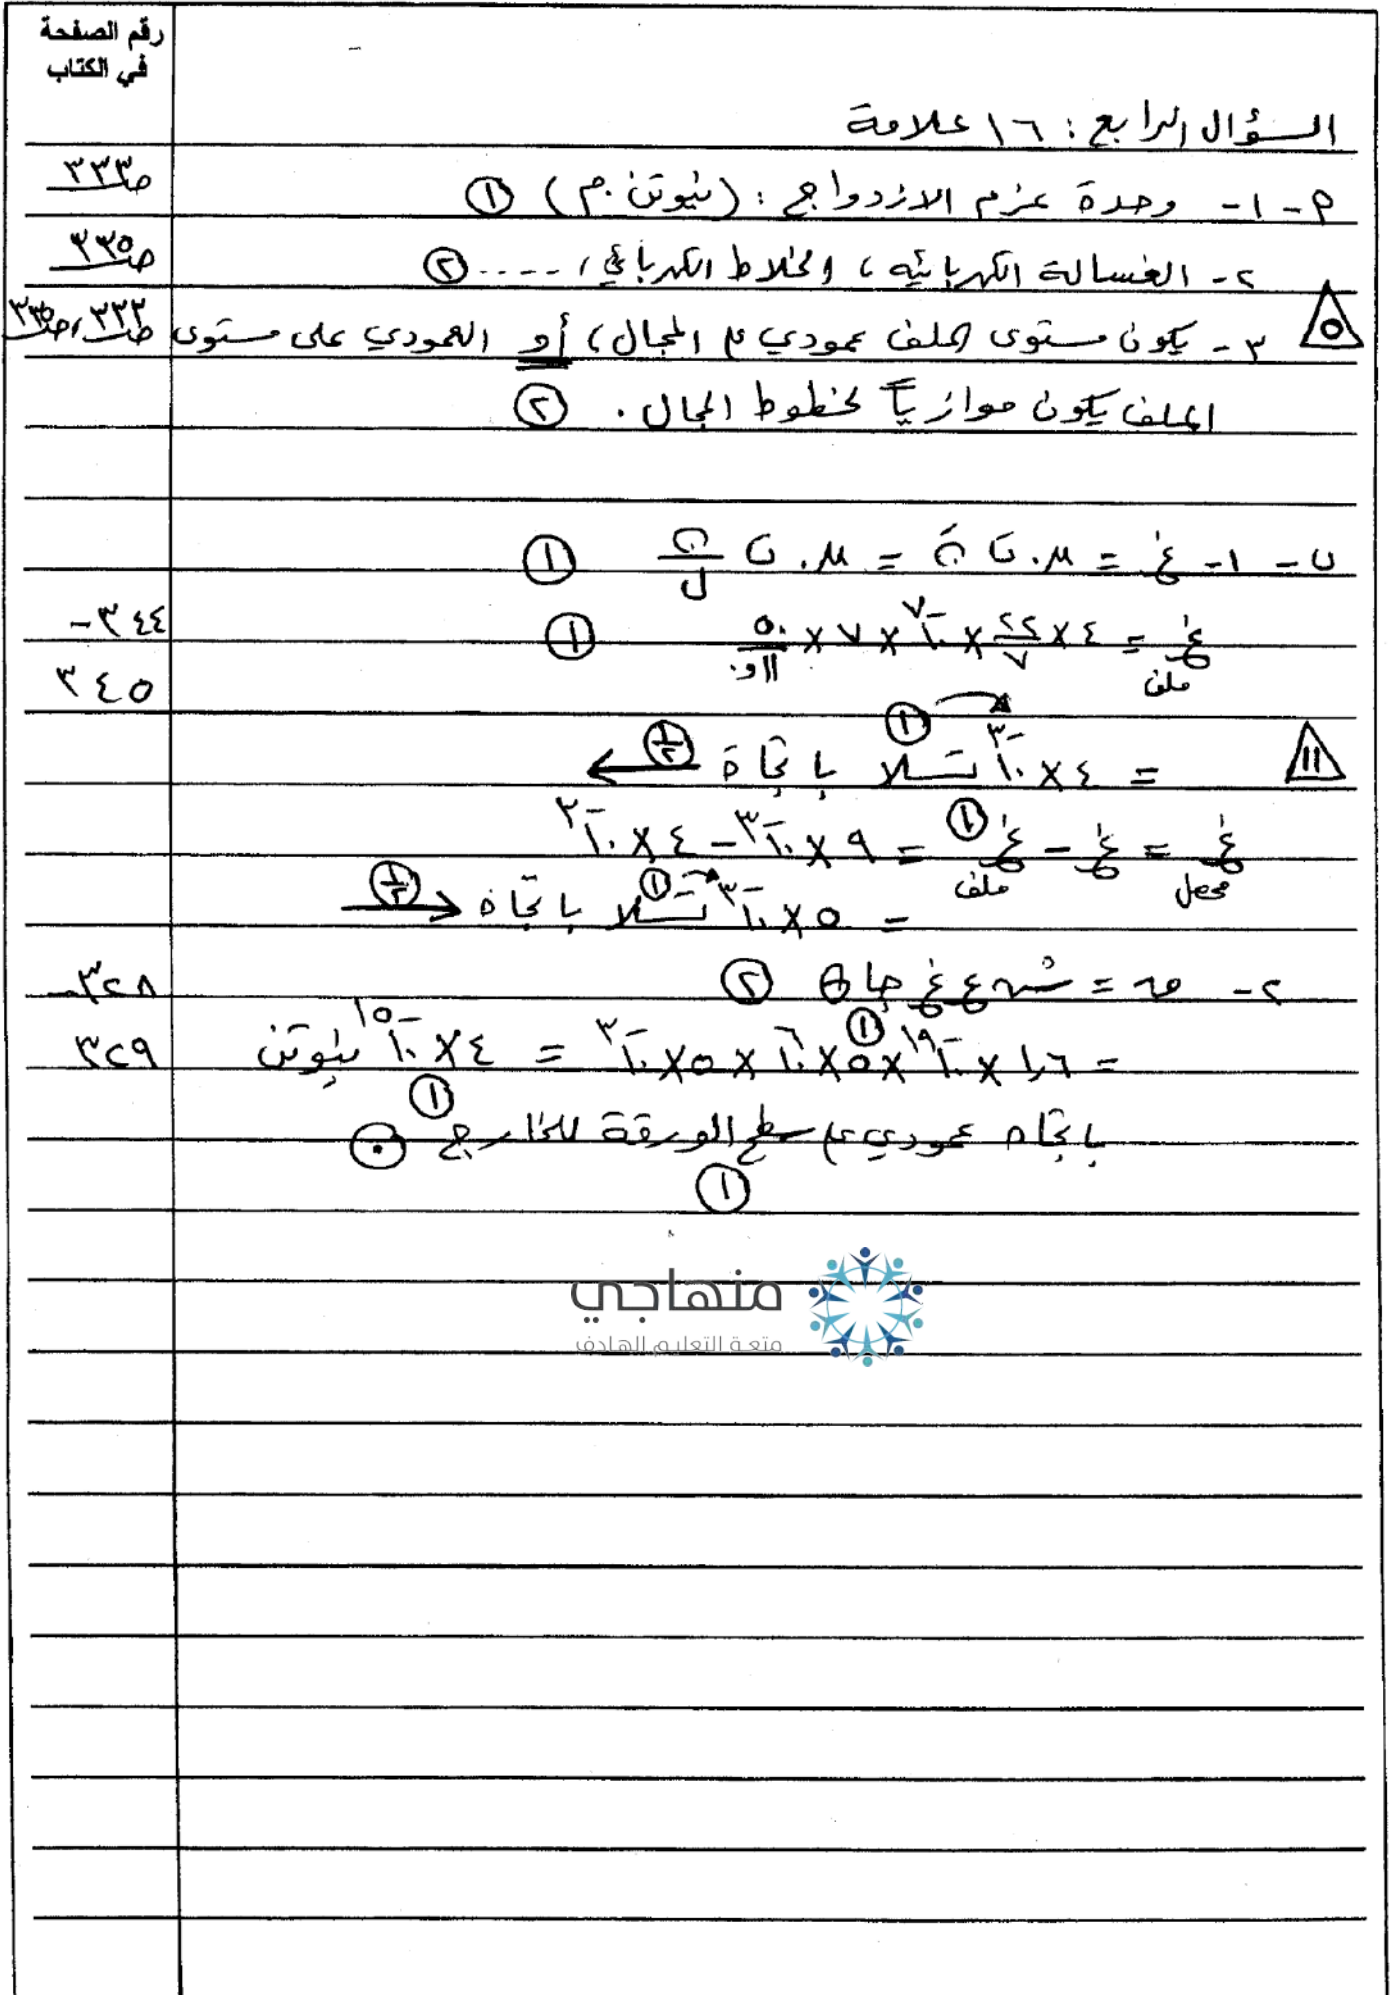 رقم الصفحة
في الكتاب
السؤال الرابع : ١٦ علامة
م - ١ - وحدة عزم الازدواج : (نيوتن . م) ① ص ٣٣٣
٢ - الغسالة الكهربائيه ، والخلاط الكهربائي ، .... ② ص ٣٣٥
٣ - يكون مستوى الملف عمودي ع المجال ، أو العمودي على مستوى ص ٣٣٣ ،
الملف يكون موازياً لخطوط المجال . ②
٥
ب - ١ - غ = μ. ت نَ = μ. ت ن/ل ①
غ ملف = ٤ × ٢٢/٧ × ١٠^-٧ × ٧ × ٥٠/٠,١١ ① ٣٤٤ -
٣٤٥
= ٤ × ١٠^-٣ ① تسلا باتجاه ← ١/٢
١١
غ محصل = غ - غ ملف ① = ٩ × ١٠^-٣ - ٤ × ١٠^-٣
= ٥ × ١٠^-٣ تسلا ① باتجاه → ١/٢
٢ - ق = شہ ع غ جا θ ② ٣٢٨ -
= ١,٦ × ١٠^-١٩ × ٥ × ١٠^٦ × ٥ × ١٠^-٣ ① = ٤ × ١٠^-١٥ نيوتن ① ٣٢٩
باتجاه عمودي ع سطح الورقة للخارج ⊙
①
منهاجي
متعة التعليم الهادف